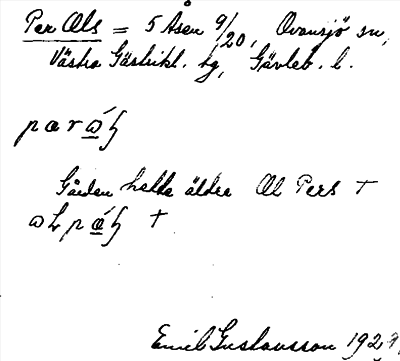 Per Ols = 5 Åsen 9/20, Ovansjö sn,
Västra Gästrikl. tg, Gävleb. l.
Gården hette äldre Ol Pers †
†
Emil Gustavsson 1929,